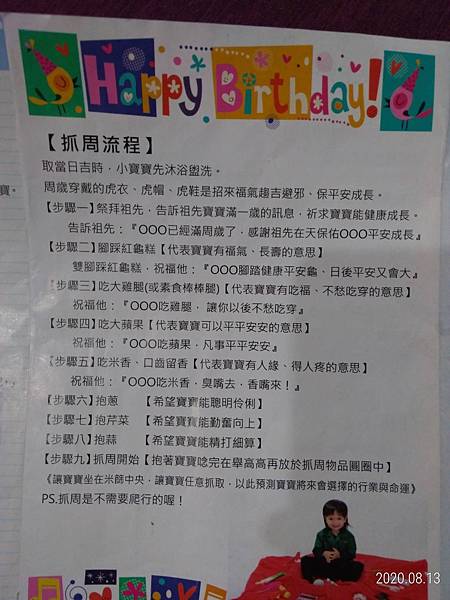 Happy Birthday!
【抓周流程】
取當日吉時，小寶寶先沐浴盥洗。
寶。
周歲穿戴的虎衣、虎帽、虎鞋是招來福氣趨吉避邪、保平安成長。
【步驟一】祭拜祖先，告訴祖先寶寶滿一歲的訊息，祈求寶寶能健康成長。
告訴祖先：『OOO已經滿周歲了，感謝祖先在天保佑OOO平安成長』
【步驟二】腳踩紅龜糕【代表寶寶有福氣、長壽的意思】
雙腳踩紅龜糕，祝福他：『OOO腳踏健康平安龜、日後平安又會大』
【步驟三】吃大雞腿(或素食棒棒腿)【代表寶寶有吃福、不愁吃穿的意思】
祝福他：『OOO吃雞腿， 讓你以後不愁吃穿』
【步驟四】吃大蘋果【代表寶寶可以平平安安的意思】
祝福他：『OOO吃蘋果，凡事平平安安』
【步驟五】吃米香、口齒留香【代表寶寶有人緣、得人疼的意思】
祝福他：『OOO吃米香，臭嘴去，香嘴來！』
【步驟六】抱蔥 【希望寶寶能聰明伶俐】
【步驟七】抱芹菜 【希望寶寶能勤奮向上】
【步驟八】抱蒜 【希望寶寶能精打細算】
【步驟九】抓周開始【抱著寶寶唸完在舉高高再放於抓周物品圓圈中】
《讓寶寶坐在米篩中央，讓寶寶任意抓取，以此預測寶寶將來會選擇的行業與命運》
PS.抓周是不需要爬行的喔！
2020.08.13